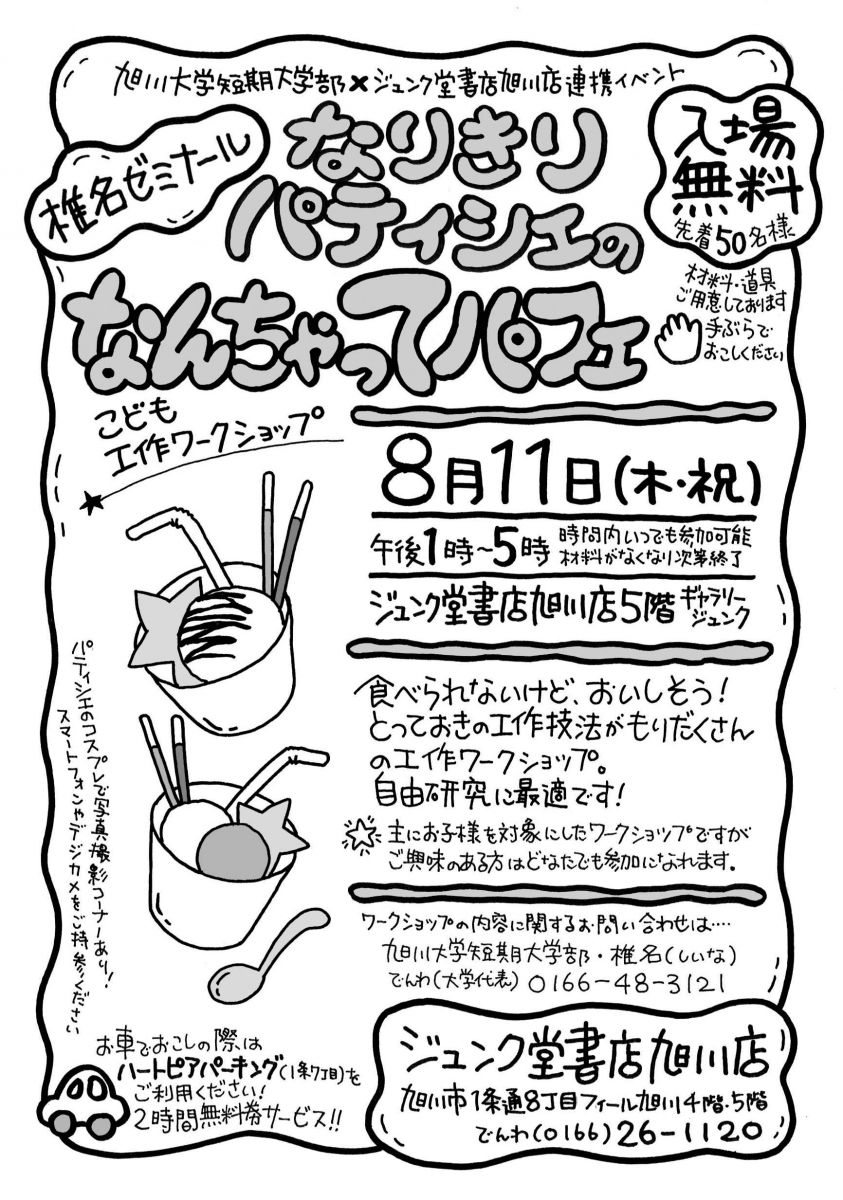 旭川大学短期大学部×ジュンク堂書店旭川店連携イベント
椎名ゼミナール
なりきり
パティシエの
なんちゃってパフェ
入場
無料
先着50名様
材料・道具
ご用意しております
手ぶらで
おこしください
こども
工作ワークショップ
8月11日(木・祝)
午後1時~5時
時間内いつでも参加可能
材料がなくなり次第終了
ジュンク堂書店旭川店5階
ギャラリー
ジュンク
食べられないけど、おいしそう!
とっておきの工作技法がもりだくさん
の工作ワークショップ。
自由研究に最適です!
主にお子様を対象にしたワークショップですが
ご興味のある方はどなたでも参加になれます。
パティシエのコスプレで写真撮影コーナーあり!
スマートフォンやデジカメをご持参ください
ワークショップの内容に関するお問い合わせは‥‥
旭川大学短期大学部・椎名(しいな)
でんわ(大学代表) 0166-48-3121
お車でおこしの際は
ハートピアパーキング(1条7丁目)を
ご利用ください!
2時間無料券サービス!!
ジュンク堂書店旭川店
旭川市1条通8丁目フィール旭川4階・5階
でんわ(0166)26-1120